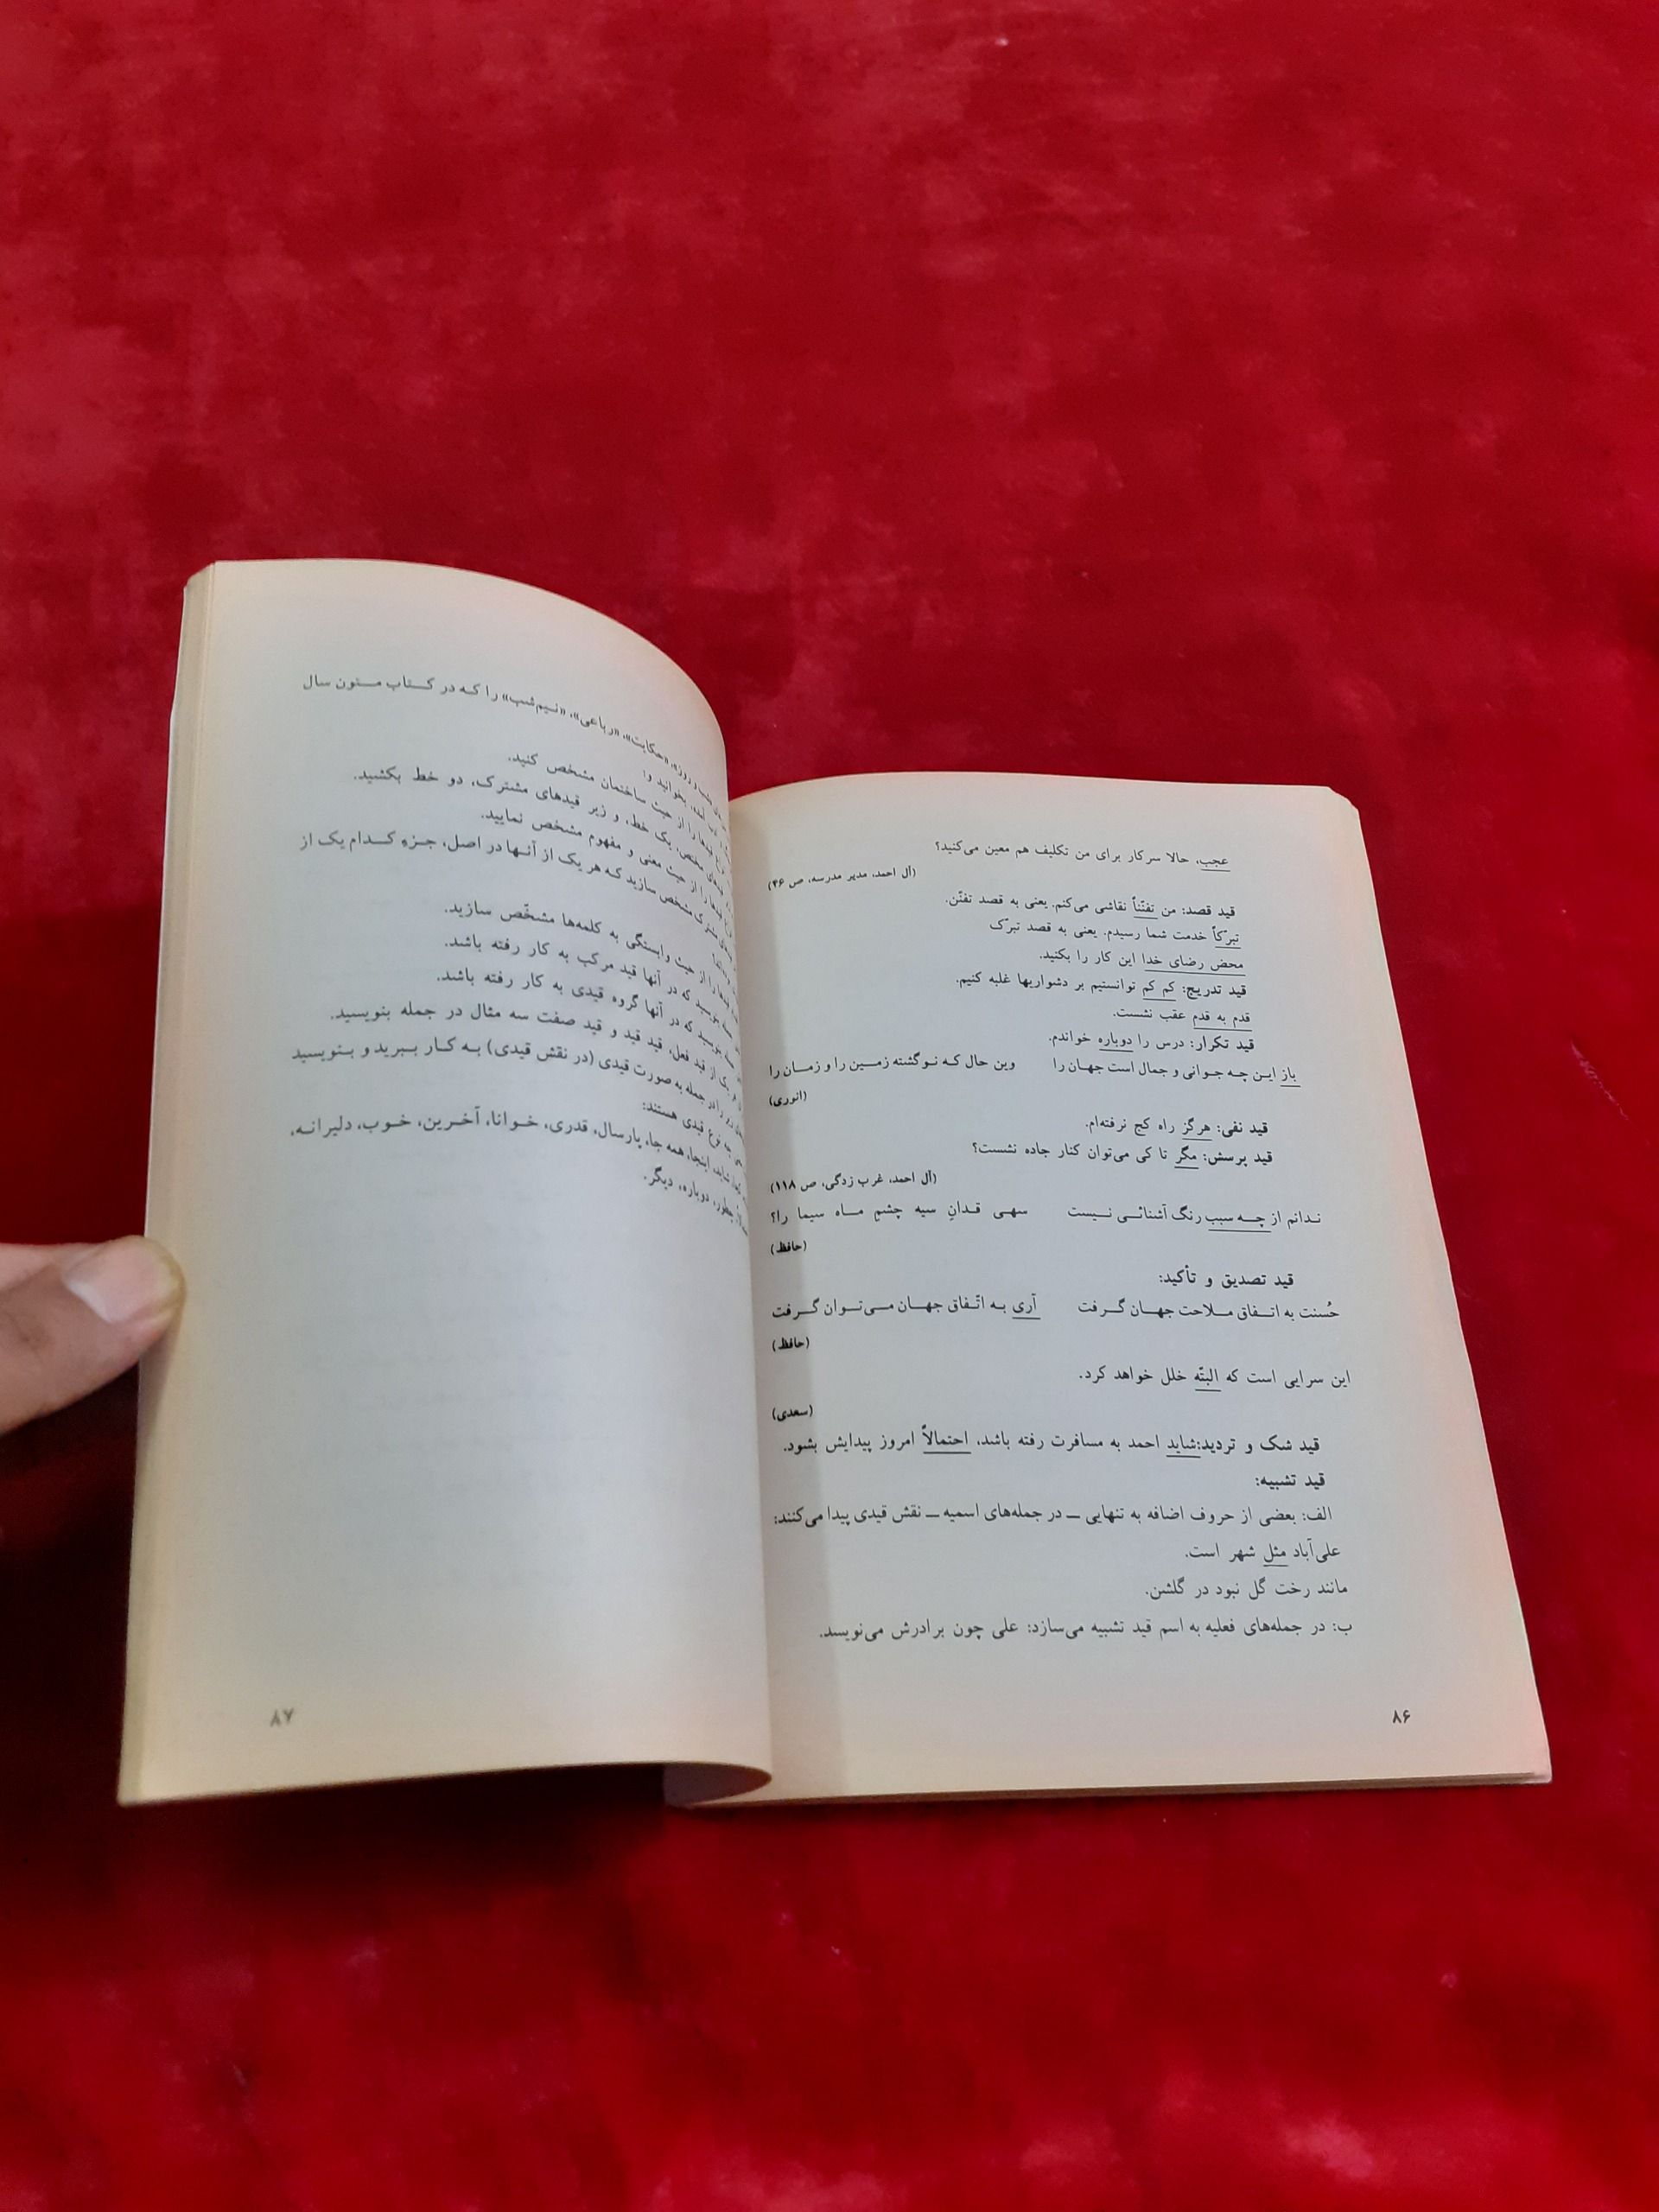 عجب، حالا سرکار برای من تکلیف هم معین می‌کنید؟
(آل احمد، مدیر مدرسه، ص ۴۶)
قید قصد: من تفنّناً نقاشی می‌کنم. یعنی به قصد تفنّن.
تبرّکاً خدمت شما رسیدم. یعنی به قصد تبرّک
محض رضای خدا این کار را بکنید.
قید تدریج: کم کم توانستیم بر دشواریها غلبه کنیم.
قدم به قدم عقب نشست.
قید تکرار: درس را دوباره خواندم.
باز این چه جوانی و جمال است جهان را وین حال که نو گشته زمین را و زمان را
(انوری)
قید نفی: هرگز راه کج نرفته‌ام.
قید پرسش: مگر تا کی می‌توان کنار جاده نشست؟
(آل احمد، غرب زدگی، ص ۱۱۸)
ندانم از چه سبب رنگ آشنائی نیست سهی قدانِ سیه چشمِ ماه سیما را؟
(حافظ)
قید تصدیق و تأکید:
حُسنت به اتفاق ملاحت جهان گرفت آری به اتّفاق جهان می‌توان گرفت
(حافظ)
این سرایی است که البتّه خلل خواهد کرد.
(سعدی)
قید شک و تردید: شاید احمد به مسافرت رفته باشد، احتمالاً امروز پیدایش بشود.
قید تشبیه:
الف: بعضی از حروف اضافه به تنهایی ــ در جمله‌های اسمیه ــ نقش قیدی پیدا می‌کنند:
علی‌آباد مثل شهر است.
مانند رخت گل نبود در گلشن.
ب: در جمله‌های فعلیه به اسم قید تشبیه می‌سازد: علی چون برادرش می‌نویسد.
۸۶
«حکایت»، «رباعی»، «نیم‌شب» را که در کتاب متون سال
بخوانید و:
را از حیث ساختمان مشخص کنید.
مختص، یک خط، و زیر قیدهای مشترک، دو خط بکشید.
را از حیث معنی و مفهوم مشخص نمایید.
مشترک مشخص سازید که هر یک از آنها در اصل، جزءِ کدام یک از
را از حیث وابستگی به کلمه‌ها مشخّص سازید.
بنویسید که در آنها قید مرکب به کار رفته باشد.
بنویسید که در آنها گروه قیدی به کار رفته باشد.
یک از قید فعل، قید قید و قید صفت سه مثال در جمله بنویسید.
را در جمله به صورت قیدی (در نقش قیدی) به کار ببرید و بنویسید
چه نوع قیدی هستند:
شاید، اینجا، همه جا، پارسال، قدری، خوانا، آخرین، خوب، دلیرانه،
چطور، دوباره، دیگر.
۸۷